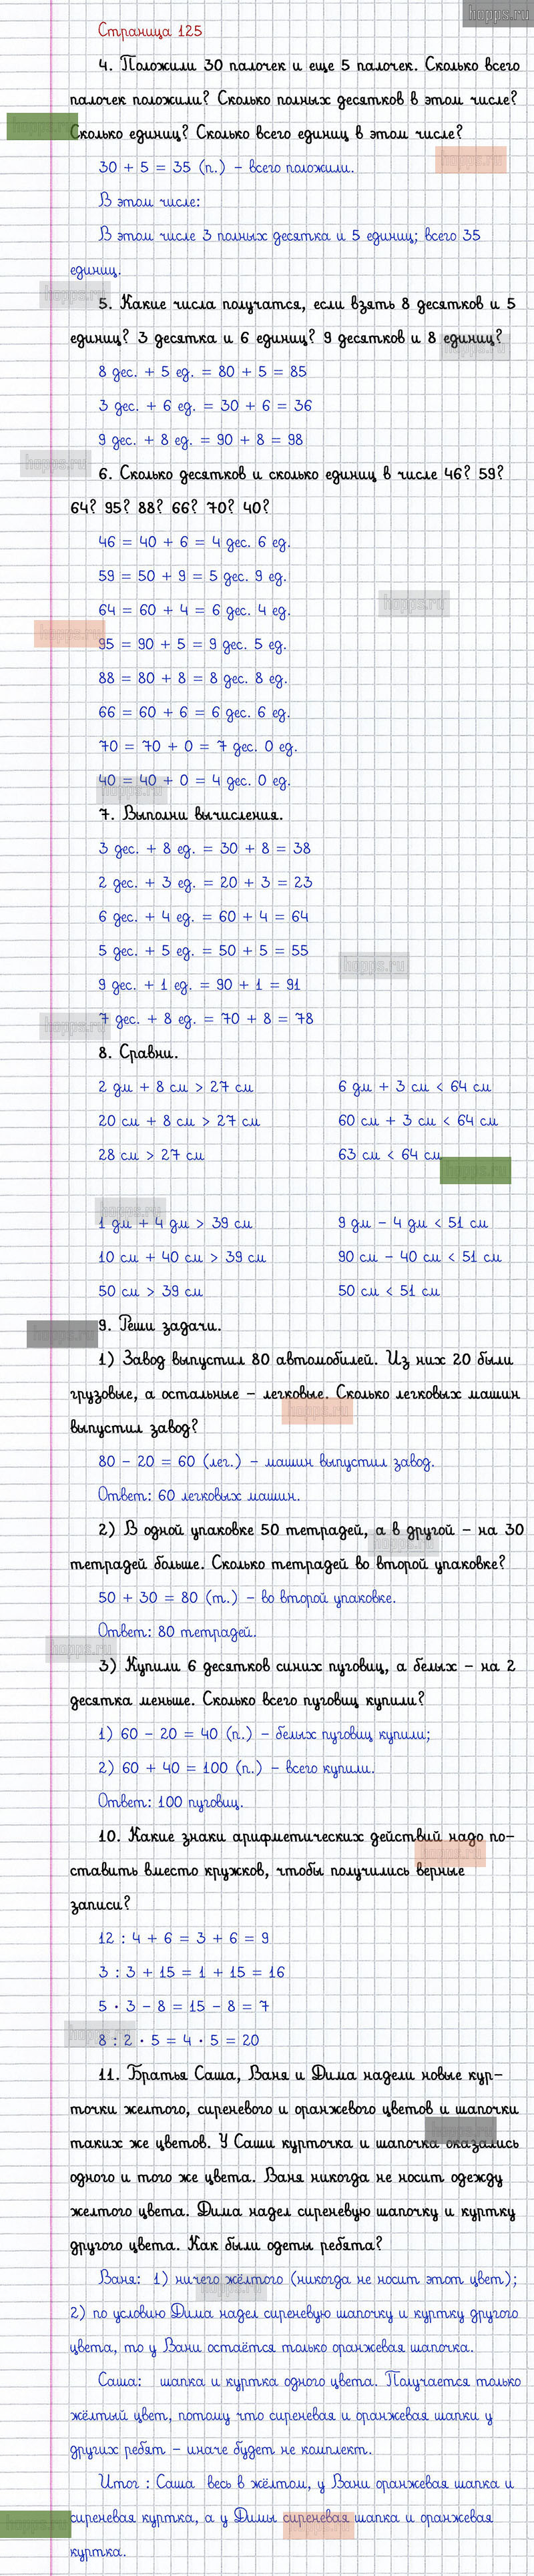 hopps.ru
Страница 125
4. Положили 30 палочек и еще 5 палочек. Сколько всего
палочек положили? Сколько полных десятков в этом числе?
Сколько единиц? Сколько всего единиц в этом числе?
30 + 5 = 35 (п.) – всего положили.
В этом числе:
В этом числе 3 полных десятка и 5 единиц; всего 35
единиц.
5. Какие числа получатся, если взять 8 десятков и 5
единиц? 3 десятка и 6 единиц? 9 десятков и 8 единиц?
8 дес. + 5 ед. = 80 + 5 = 85
3 дес. + 6 ед. = 30 + 6 = 36
9 дес. + 8 ед. = 90 + 8 = 98
6. Сколько десятков и сколько единиц в числе 46? 59?
64? 95? 88? 66? 70? 40?
46 = 40 + 6 = 4 дес. 6 ед.
59 = 50 + 9 = 5 дес. 9 ед.
64 = 60 + 4 = 6 дес. 4 ед.
95 = 90 + 5 = 9 дес. 5 ед.
88 = 80 + 8 = 8 дес. 8 ед.
66 = 60 + 6 = 6 дес. 6 ед.
70 = 70 + 0 = 7 дес. 0 ед.
40 = 40 + 0 = 4 дес. 0 ед.
7. Выполни вычисления.
3 дес. + 8 ед. = 30 + 8 = 38
2 дес. + 3 ед. = 20 + 3 = 23
6 дес. + 4 ед. = 60 + 4 = 64
5 дес. + 5 ед. = 50 + 5 = 55
9 дес. + 1 ед. = 90 + 1 = 91
7 дес. + 8 ед. = 70 + 8 = 78
8. Сравни.
2 дм + 8 см > 27 см 6 дм + 3 см < 64 см
20 см + 8 см > 27 см 60 см + 3 см < 64 см
28 см > 27 см 63 см < 64 см
1 дм + 4 дм > 39 см 9 дм – 4 дм < 51 см
10 см + 40 см > 39 см 90 см – 40 см < 51 см
50 см > 39 см 50 см < 51 см
9. Реши задачи.
1) Завод выпустил 80 автомобилей. Из них 20 были
грузовые, а остальные – легковые. Сколько легковых машин
выпустил завод?
80 – 20 = 60 (лег.) – машин выпустил завод.
Ответ: 60 легковых машин.
2) В одной упаковке 50 тетрадей, а в другой – на 30
тетрадей больше. Сколько тетрадей во второй упаковке?
50 + 30 = 80 (т.) – во второй упаковке.
Ответ: 80 тетрадей.
3) Купили 6 десятков синих пуговиц, а белых – на 2
десятка меньше. Сколько всего пуговиц купили?
1) 60 – 20 = 40 (п.) – белых пуговиц купили;
2) 60 + 40 = 100 (п.) – всего купили.
Ответ: 100 пуговиц.
10. Какие знаки арифметических действий надо по-
ставить вместо кружков, чтобы получились верные
записи?
12 : 4 + 6 = 3 + 6 = 9
3 : 3 + 15 = 1 + 15 = 16
5 · 3 – 8 = 15 – 8 = 7
8 : 2 · 5 = 4 · 5 = 20
11. Братья Саша, Ваня и Дима надели новые кур-
точки желтого, сиреневого и оранжевого цветов и шапочки
таких же цветов. У Саши курточка и шапочка оказались
одного и того же цвета. Ваня никогда не носит одежду
желтого цвета. Дима надел сиреневую шапочку и куртку
другого цвета. Как были одеты ребята?
Ваня: 1) ничего жёлтого (никогда не носит этот цвет);
2) по условию Дима надел сиреневую шапочку и куртку другого
цвета, то у Вани остаётся только оранжевая шапочка.
Саша: шапка и куртка одного цвета. Получается только
жёлтый цвет, потому что сиреневая и оранжевая шапки у
других ребят – иначе будет не комплект.
Итог : Саша весь в жёлтом, у Вани оранжевая шапка и
сиреневая куртка, а у Димы сиреневая шапка и оранжевая
куртка.